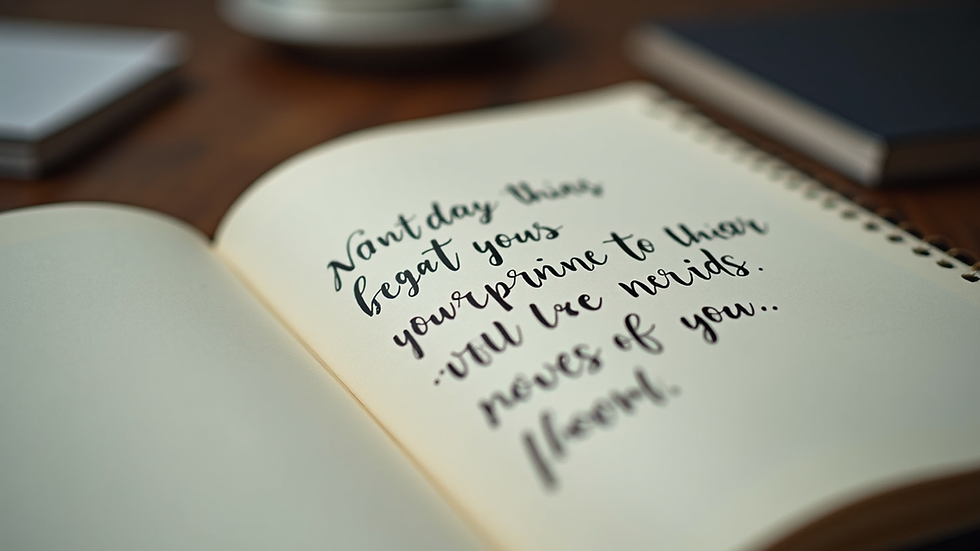 Nant day thins
begat yous
yourprinne to thiar
..voll lre nerids.
noves of you..